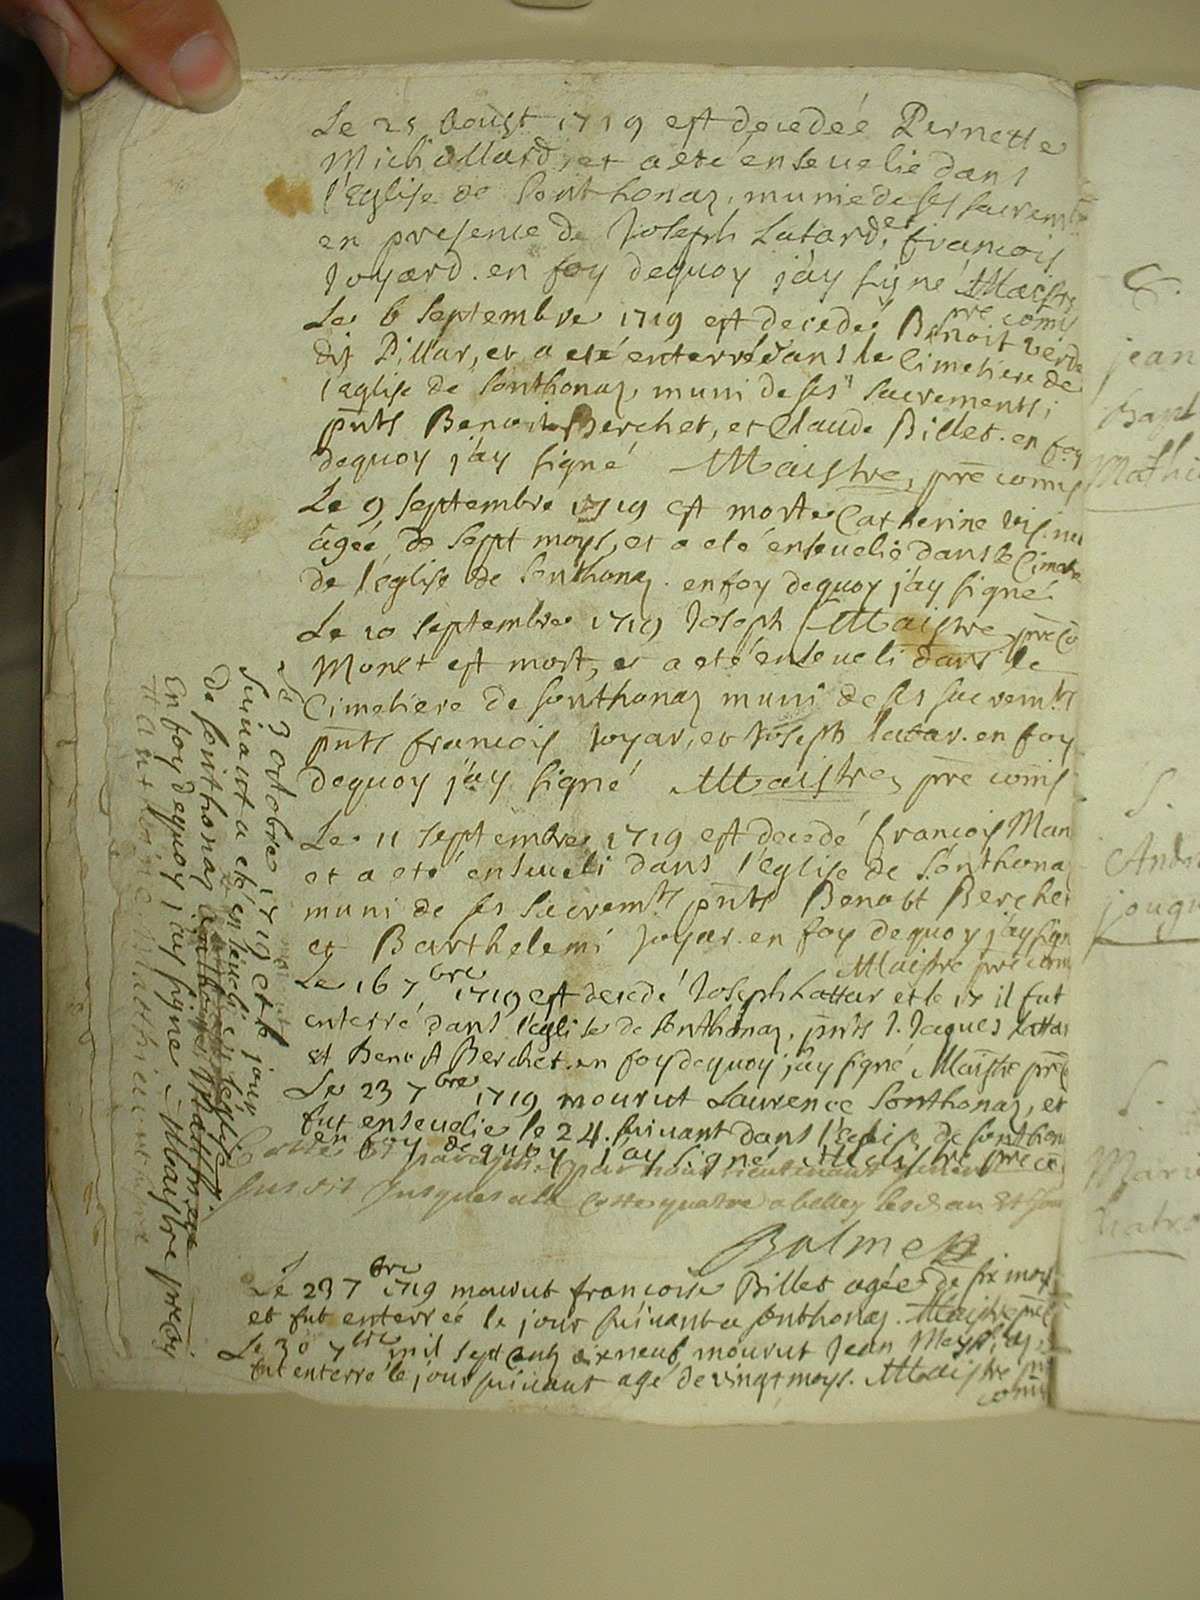 Le 25 Aoust 1719 est decedeé Pernette
Michollard, et a eté ensevelie dans
l'Eglise de Sonthonaz, munie de ses sacremts
en presence de Joseph Latard, et françois
Joyard. en foy dequoy j'ay signé Maistre
pre comis
Le 6 Septembre 1719 est decedé Benoit Verd
dit Pillar, et a eté enterré dans le Cimetiere de
l'Eglise de Sonthonaz, muni de ses sacrements;
pnts Benoit Berchet, et Claude Billet. en foy
dequoy j'ay signé Maistre, pre comis
Le 9 Septembre 1719 est morte Catherine
âgée de sept moys, et a eté ensevelie dans le Cimetre
de l'église de Sonthonaz. en foy dequoy j'ay signé.
Maistre pre co
Le 10 Septembre 1719 Joseph
Monet est mort, et a eté enseveli dans le
Cimetiere de Sonthonaz muni de ses sacremts
pnts françois Joyar, et Joseph latar. en foy
dequoy j'ay signé Maistre, pre comis
Le 11 Septembre 1719 est decedé françois Man
et a eté enseveli dans l'église de Sonthona
muni de ses sacremts pnts Benoit Berchet
et Barthelemi Joyar. en foy dequoy j'ay sign
Maistre pre comi
Le 16 7bre 1719 est decedé Joseph Lattar et le 17 il fut
enterré dans l'eglise de Sonthonaz, pnts J. Jaques lattar
et Benoit Berchet. en foy dequoy j'ay signé Maistre pre
Le 23 7bre 1719 mourut Laurence Sonthonaz, et
fut ensevelie le 24. suivant dans l'Eglise de Sonthon
en foy dequoy j'ay signé Maistre pre co
Cotté et paraphé par nous lieutenant
susdit jusques a la cotte quatre a belley les dit an et jour
Balme
Le 23 7bre 1719 mourut françoise Billet agée de six moys
et fut enterréé le jour suivant a Sonthonaz. Maistre pre
Le 30 7bre mil sept cents dixneuf mourut Jean
fut enterré le jour suivant agé de vingt moys. Maistre pre
comis
Le 3 octobre 1719 et le jour
suivant a eté enseveli en l'eglise
de Sonthonaz
En foy dequoy j'ay signé Maistre pre com
&.
jean
Bapt
Mathi
S.
Andr
S.
Marie